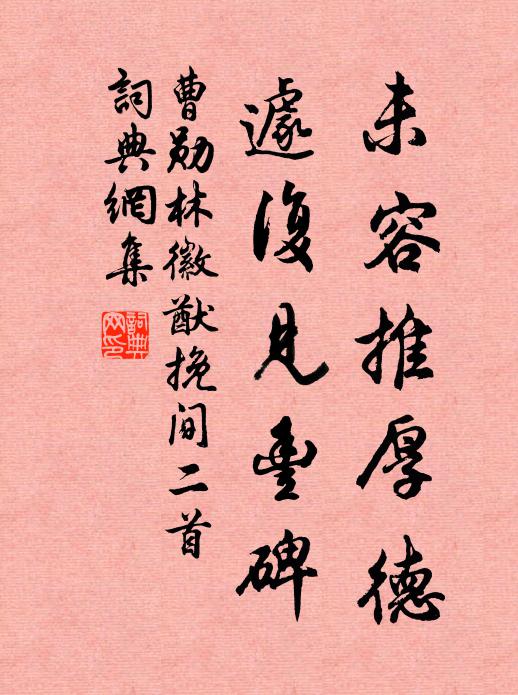 未容推厚德
遽復见豐碑
曹勛林徽猷挽间二首
詞典網集
詞典網印